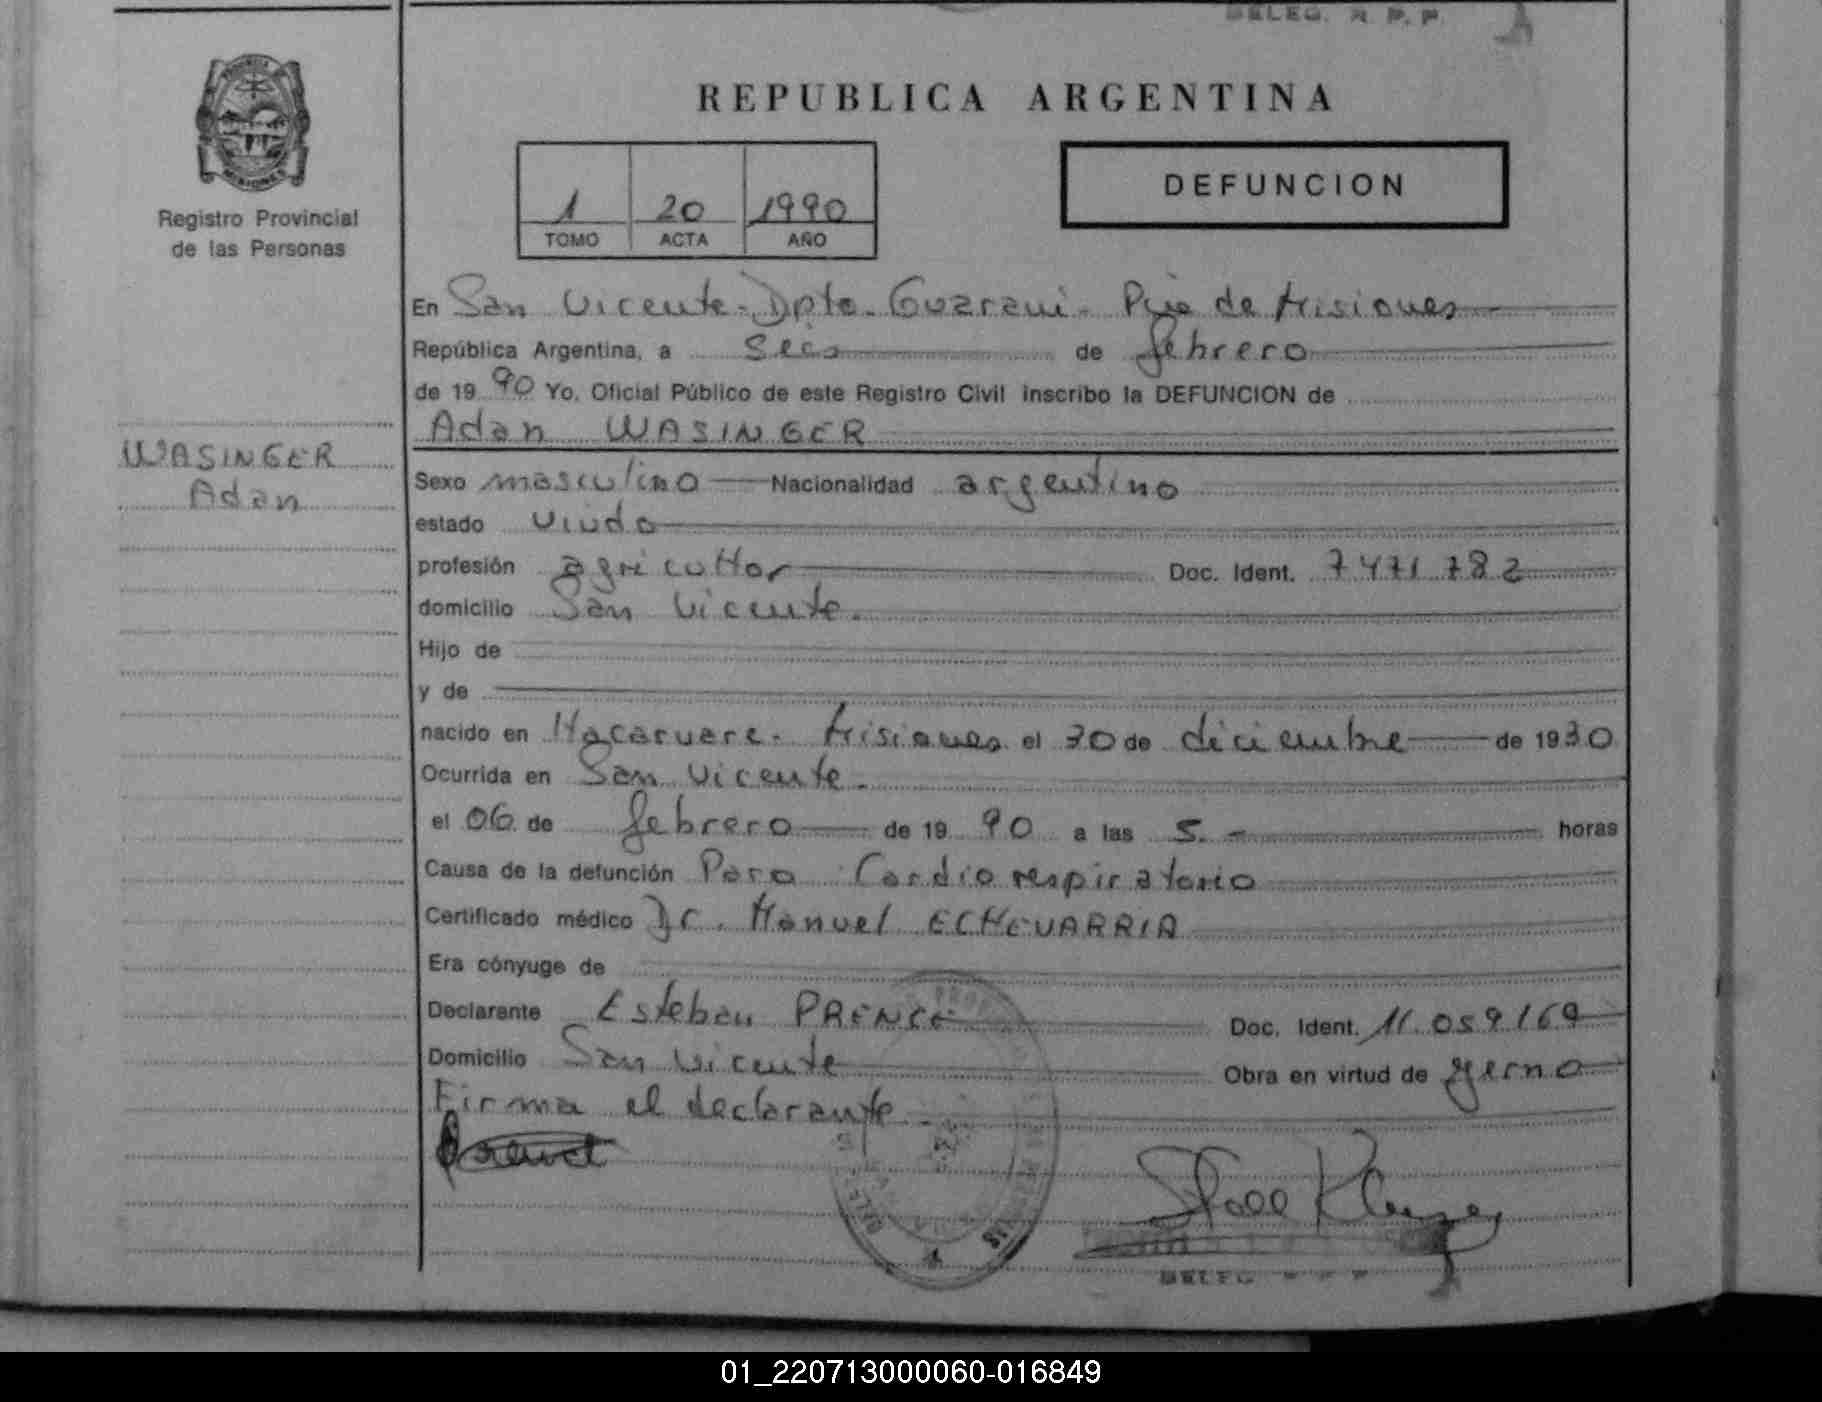 DELEG. R. P. P.
PROVINCIA
MISIONES
Registro Provincial
de las Personas
REPUBLICA ARGENTINA
1 20 1990
TOMO ACTA AÑO
DEFUNCION
En San Vicente - Dpto. Guarani - Pcia de Misiones
República Argentina, a seis de febrero
de 1990 Yo, Oficial Público de este Registro Civil inscribo la DEFUNCION de
Adan WASINGER
WASINGER
Adan
Sexo masculino Nacionalidad argentino
estado viudo
profesión agricultor Doc. Ident. 7471782
domicilio San Vicente.
Hijo de
y de
nacido en Macaruare - Misiones el 30 de diciembre de 1930
Ocurrida en San Vicente.
el 06 de febrero de 1990 a las 5. - horas
Causa de la defunción Paro Cardiorespiratorio
Certificado médico Dr. Manuel ECHEVARRIA
Era cónyuge de
Declarante Esteban PRENCE Doc. Ident. 11.059169
Domicilio San Vicente Obra en virtud de yerno
Firma el declarante
DELEG. R. P. P.
01_220713000060-016849